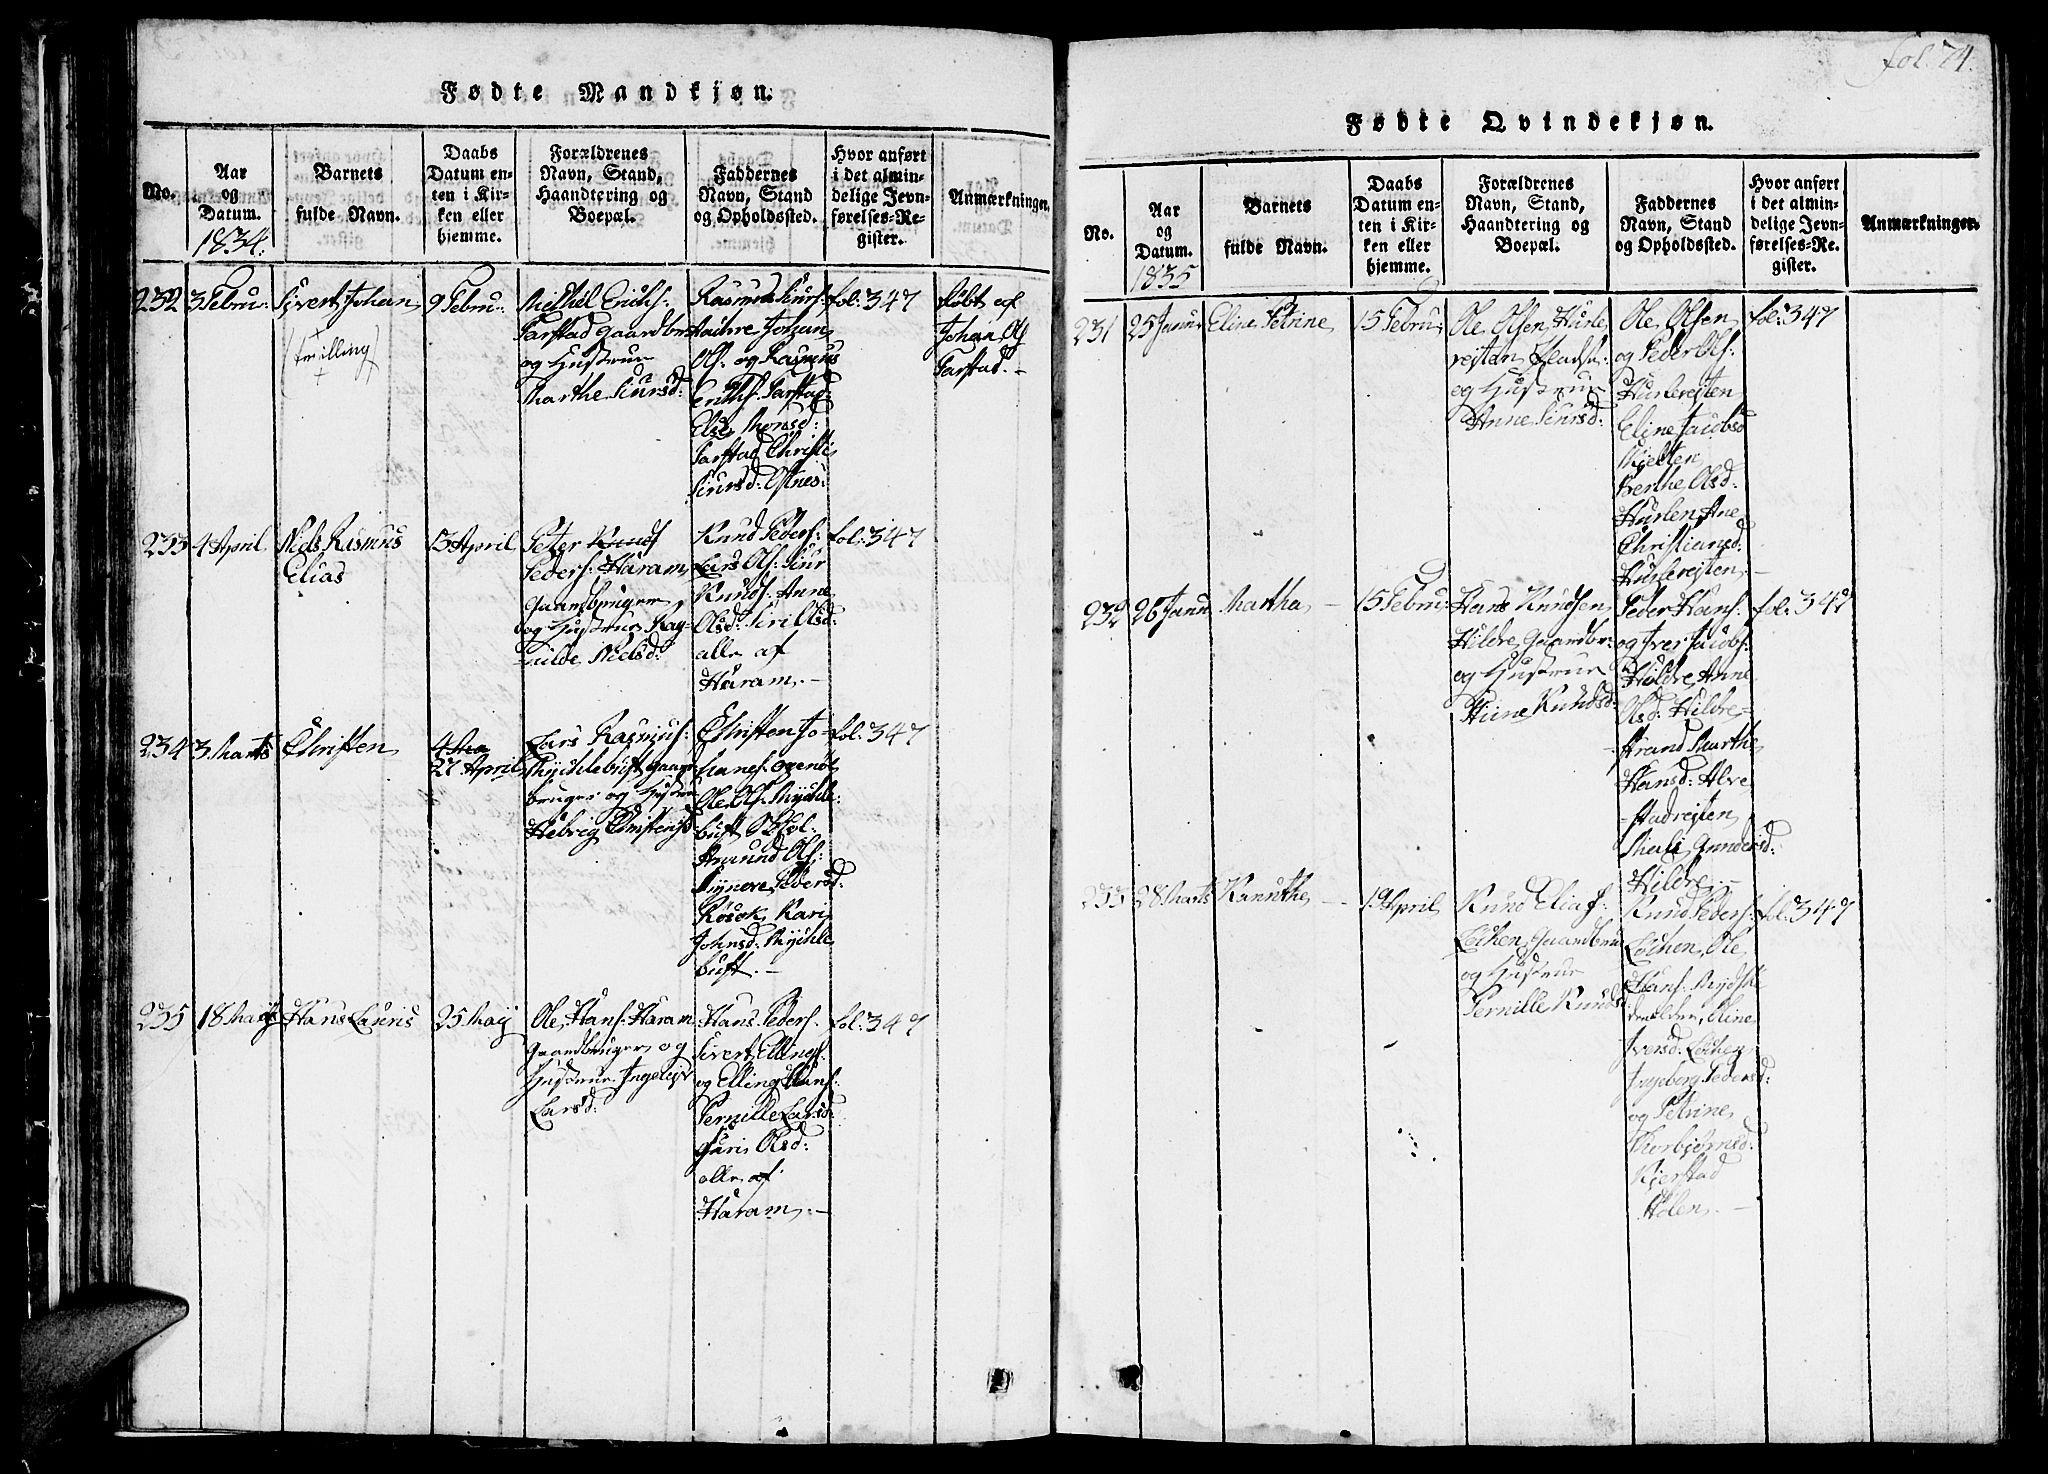 Fødte Mandkjøn.
No.
Aar
og
Datum.
1834.
Barnets
fulde Navn.
Daabs
Datum en-
ten i Kir-
ken eller
hjemme.
Forældrenes
Navn, Stand,
Haandtering og
Boepæl.
Faddernes
Navn, Stand
og Opholdssted.
Hvor anført
i det almin-
delige Jevn-
førelses-Re-
gister.
Anmærkninger.
232
3 Febru:
Sivert Johan
(trilling)
9 Febru:
Michel Erichs:
Farstad gaardbr
og Hustrue
Marthe Siursd:
Rasmus Siurs:
Johan
Ols: og Rasmus
Erichs: Farstad
Else Monsd:
Farstad Christi
Siursd: Estnes:
fol: 347
døbt af
Johan Ols
Farstad.-
233
4 April
Niels Rasmus
Elias
13 April
Peter Knuds
Peders: Haram
Gaardbruger
og Hustrue Rag-
nilde Nielsd:
Knud Peders:
Lars Ols: Siur
Knuds: Anne
Olsd: Siri Olsd:
alle af
Haram.-
fol: 347
234
3 Marts
Christen
4 Ma
27 April
Lars Rasmus:
Mychlebust gaard
bruger og Hustrue
Hebrig Christensd
Christen Jo-
hans:
Ole Ols: Mychle-
bust
Amund Ols:
Synneve Pedersd:
Røsok Kari
Johnsd: Mychle
bust.-
fol: 347
235
18 Maij
Hans Lauris
25 Maij
Ole Hans: Haram
Gaardbruger og
Hustrue Ingeleiv
Larsd:
Hans Peders:
Sivert Ellings:
og Elling Hans:
Pernille Larsd:
Guri Olsd:
alle af
Haram.-
fol: 347
fol: 74.
Fødte Qvindekjøn.
No.
Aar
og
Datum.
1835
Barnets
fulde Navn.
Daabs
Datum en-
ten i Kir-
ken eller
hjemme.
Forældrenes
Navn, Stand,
Haandtering og
Boepæl.
Faddernes
Navn, Stand
og Opholdssted.
Hvor anført
i det almin-
delige Jevn-
førelses-Re-
gister.
Anmærkninger.
231
25 Janu
Eline Petrine
15 Febru:
Ole Olsen Hurle
rejten
og Hustrue
Anne Siursd:
Ole Olsen
og Peder Ols:
Hurlerejten
Eline Jacobsd
Mielten
Berthe Olsd:
Hurlen Ane
Christiansd:
Hurlerejten.-
fol: 347
232
26 Janu
Martha
15 Febru:
Hans Knudsen
Hildre Gaardbr:
og Hustrue
Knudsd:
Peder Hans:
og Iver Jacobs:
Hildre Anne
Olsd: Hildre-
strand Marthe
Hansd: Alve
stadrejten
Gundersd:
Hildre.-
fol: 347
233
28 Marts
Kanuthe
19 April
Knud Elias:
Løchen Gaardbru
og Hustrue
Pernille Knudsd
Knud Peders:
Løchen Ole
Hans:
Eline
Iversd: Løchen
Ingeborg Pedersd:
og Petrine
Thorbjørnsd:
Kierstad
Holen.-
fol: 347